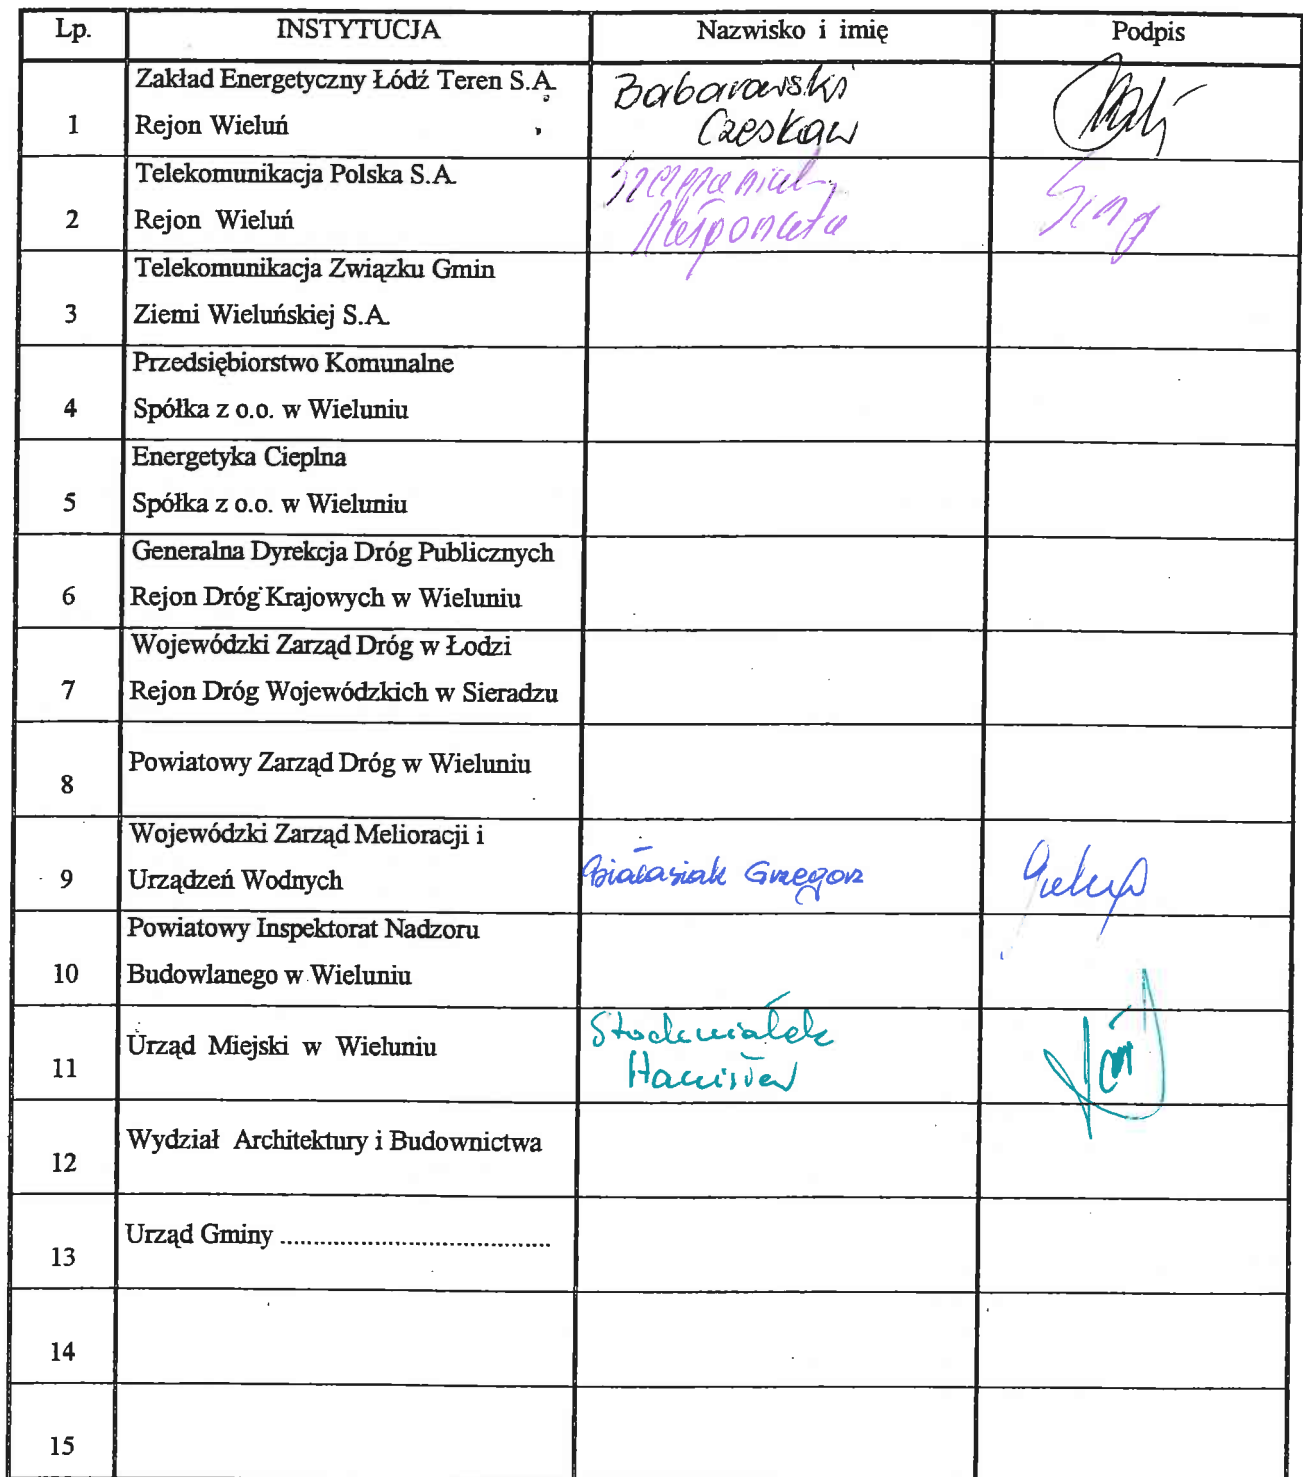 Lp. INSTYTUCJA Nazwisko i imię Podpis
Zakład Energetyczny Łódź Teren S.A. Babarowski
1 Rejon Wieluń Czesław
Telekomunikacja Polska S.A.
2 Rejon Wieluń
Telekomunikacja Związku Gmin
3 Ziemi Wieluńskiej S.A.
Przedsiębiorstwo Komunalne
4 Spółka z o.o. w Wieluniu
Energetyka Cieplna
5 Spółka z o.o. w Wieluniu
Generalna Dyrekcja Dróg Publicznych
6 Rejon Dróg Krajowych w Wieluniu
Wojewódzki Zarząd Dróg w Łodzi
7 Rejon Dróg Wojewódzkich w Sieradzu
8 Powiatowy Zarząd Dróg w Wieluniu
Wojewódzki Zarząd Melioracji i
9 Urządzeń Wodnych Białasiak Grzegorz
Powiatowy Inspektorat Nadzoru
10 Budowlanego w Wieluniu
11 Urząd Miejski w Wieluniu
12 Wydział Architektury i Budownictwa
13 Urząd Gminy ........................................
14
15